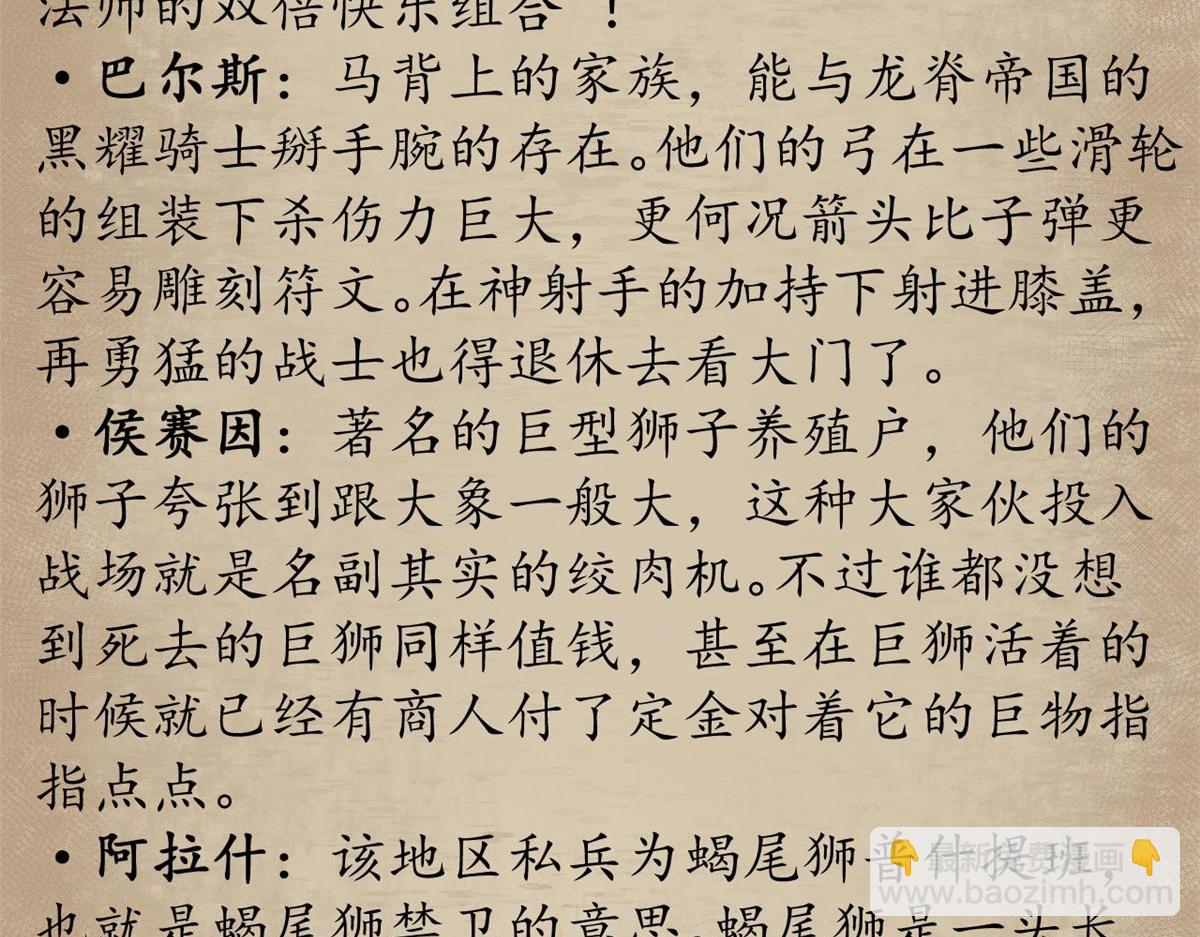 法师的双倍快乐组合"！
·巴尔斯：马背上的家族，能与龙脊帝国的
黑耀骑士掰手腕的存在。他们的弓在一些滑轮
的组装下杀伤力巨大，更何况箭头比子弹更
容易雕刻符文。在神射手的加持下射进膝盖，
再勇猛的战士也得退休去看大门了。
·侯赛因：著名的巨型狮子养殖户，他们的
狮子夸张到跟大象一般大，这种大家伙投入
战场就是名副其实的绞肉机。不过谁都没想
到死去的巨狮同样值钱，甚至在巨狮活着的
时候就已经有商人付了定金对着它的巨物指
指点点。
·阿拉什：该地区私兵为蝎尾狮普什提班，
👇最新免费漫画👇
www.baozimh.com
也就是蝎尾狮禁卫的意思。蝎尾狮是一头长